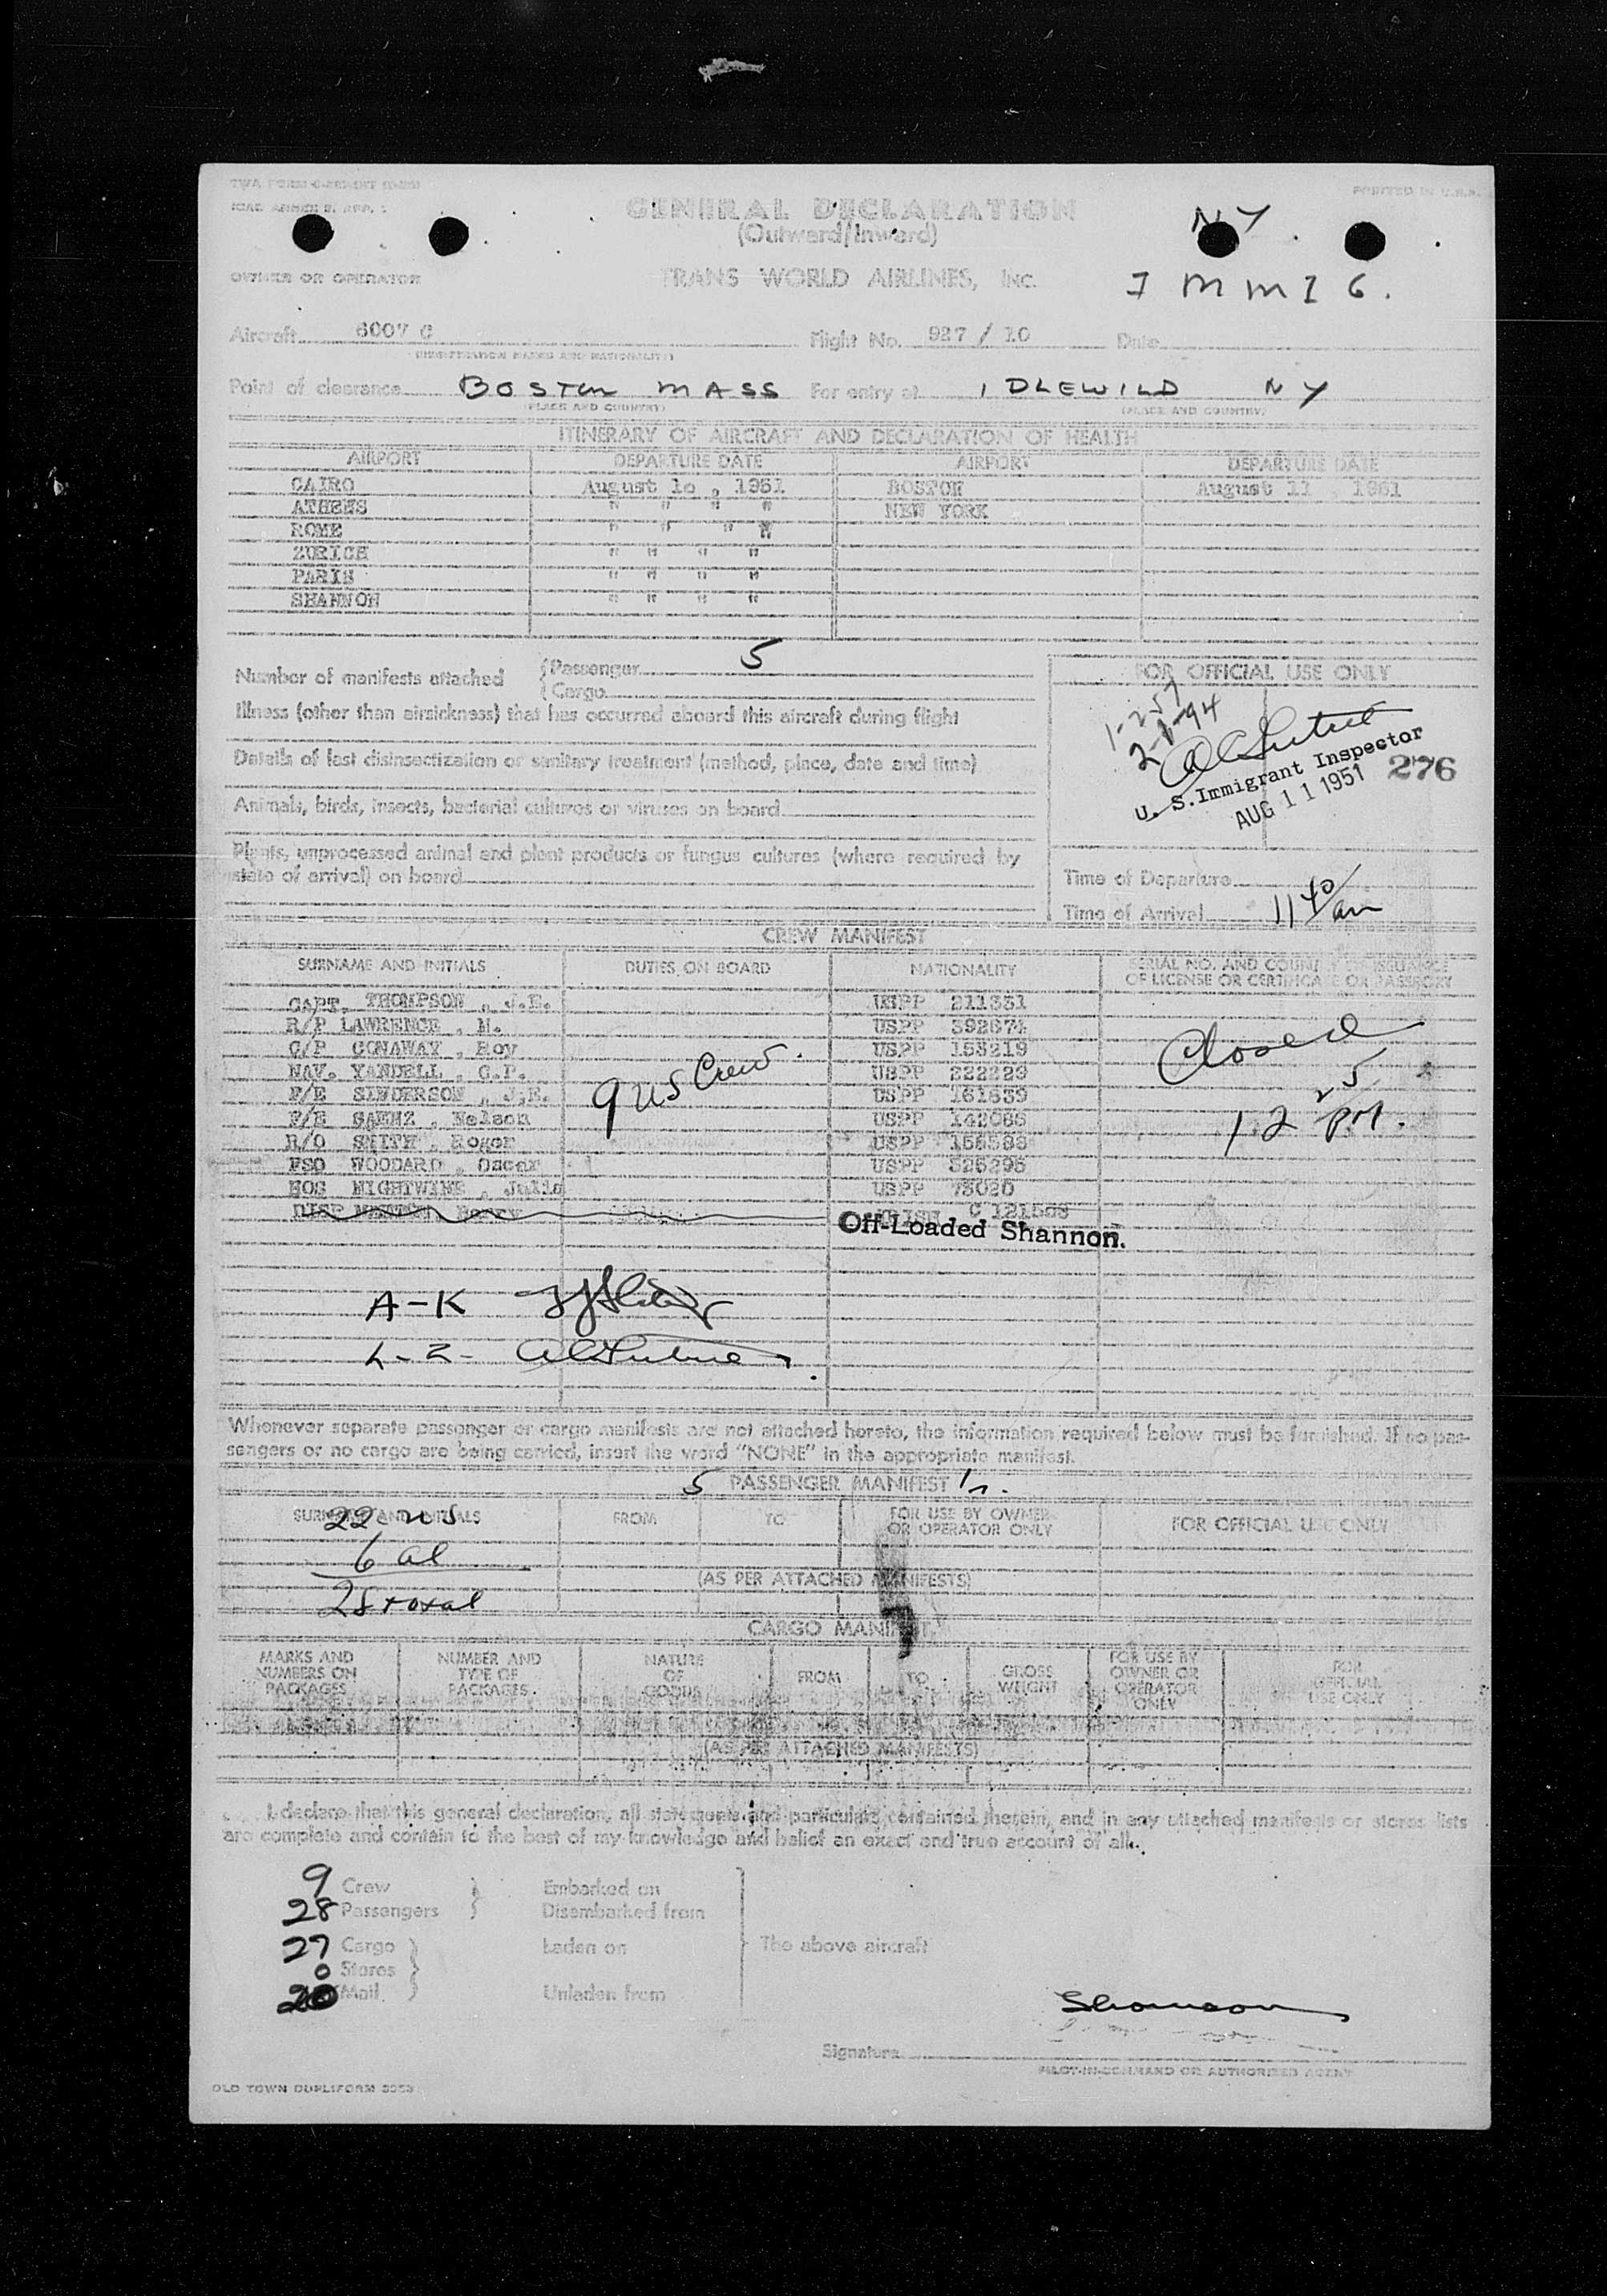 ICAO ANNEX 9, APP. 1
PRINTED IN U.S.A.
GENERAL DECLARATION
(Outward/Inward)
NY
OWNER OR OPERATOR
TRANS WORLD AIRLINES, INC.
IMMIG.
Aircraft 6007 C Flight No. 927 / 10 Date
Point of clearance BOSTON MASS For entry at IDLEWILD NY
(PLACE AND COUNTRY) (PLACE AND COUNTRY)
ITINERARY OF AIRCRAFT AND DECLARATION OF HEALTH
AIRPORT DEPARTURE DATE AIRPORT DEPARTURE DATE
CAIRO August 10 , 1951 BOSTON August 11 , 1951
ATHENS " " " " NEW YORK
ROME " " " "
ZURICH " " " "
PARIS " " " "
SHANNON " " " "
Number of manifests attached
(Passenger 5
(Cargo
FOR OFFICIAL USE ONLY
Illness (other than airsickness) that has occurred aboard this aircraft during flight
Details of last disinsectization or sanitary treatment (method, place, date and time)
Animals, birds, insects, bacterial cultures or viruses on board
Plants, unprocessed animal and plant products or fungus cultures (where required by
state of arrival) on board
1-257
U. S. Immigrant Inspector 276
AUG 11 1951
Time of Departure
Time of Arrival 11 40/am
CREW MANIFEST
SURNAME AND INITIALS DUTIES ON BOARD NATIONALITY SERIAL NO. AND COUNTRY OF ISSUANCE
OF LICENSE OR CERTIFICATE OR PASSPORT
CAPT. THOMPSON , J.E. USPP 211331
R/P LAWRENCE , M. USPP 392674
C/P CONAWAY , Roy USPP 153219
NAV. YANDELL , C.P. USPP 222229
F/E SINDERSON , J.E. USPP 161639
F/E SAENZ , Nelson USPP 142086
R/O SMITH , Roger USPP
FSO WOODARD , Oscar USPP 326296
HOS NIGHTWINE , Julia USPP 75020
9 US Crew.
Closed
12 25 PM.
Off-Loaded Shannon.
A-K
L-Z-
Whenever separate passenger or cargo manifests are not attached hereto, the information required below must be furnished. If no pas-
sengers or no cargo are being carried, insert the word "NONE" in the appropriate manifest.
5 PASSENGER MANIFEST
SURNAME AND INITIALS FROM TO FOR USE BY OWNER
OR OPERATOR ONLY FOR OFFICIAL USE ONLY
22 US.
6 al
28 total
(AS PER ATTACHED MANIFESTS)
CARGO MANIFEST
MARKS AND
NUMBERS ON
PACKAGES
NUMBER AND
TYPE OF
PACKAGES
NATURE
OF
GOODS
FROM
TO
GROSS
WEIGHT
FOR USE BY
OWNER OR
OPERATOR
ONLY
FOR
OFFICIAL
USE ONLY
(AS PER ATTACHED MANIFESTS)
I declare that this general declaration, all statements and particulars contained therein, and in any attached manifests or stores lists
are complete and contain to the best of my knowledge and belief an exact and true account of all.
9 Crew } Embarked on
28 Passengers } Disembarked from
27 Cargo } Laden on The above aircraft
0 Stores }
Mail } Unladen from
Signature
PILOT-IN-COMMAND OR AUTHORIZED AGENT
OLD TOWN DUPLIFORM